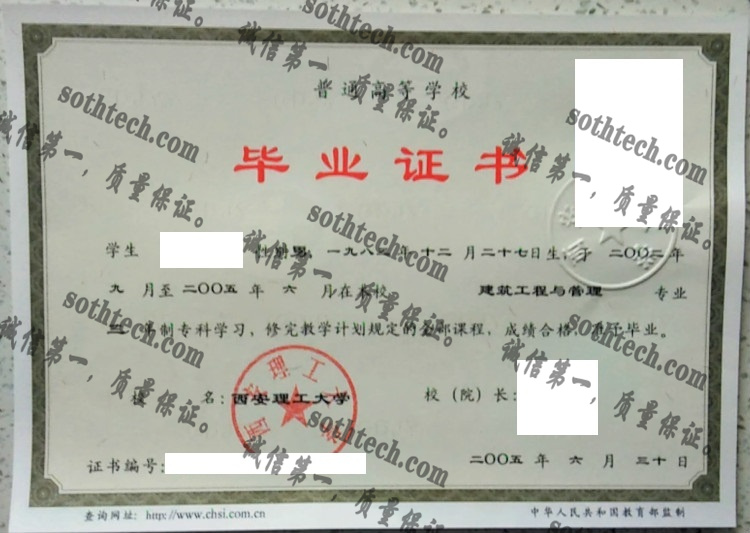 普通高等学校
毕业证书
学生 性别男，一九八 年十二月二十七日生，于 二〇〇二年
九月至二〇〇五年六月在本校 建筑工程与管理 专业
三年制专科学习，修完教学计划规定的全部课程，成绩合格，准予毕业。
校名：西安理工大学 校（院）长：
证书编号： 二〇〇五年六月三十日
查询网址：http://www.chsi.com.cn 中华人民共和国教育部监制
西安理工大学
sothtech.com
诚信第一，质量保证。
sothtech.com
诚信第一，质量保证。
sothtech.com
诚信第一，质量保证。
sothtech.com
诚信第一，质量保证。
sothtech.com
诚信第一，质量保证。
sothtech.com
诚信第一，质量保证。
sothtech.com
诚信第一，质量保证。
sothtech.com
诚信第一，质量保证。